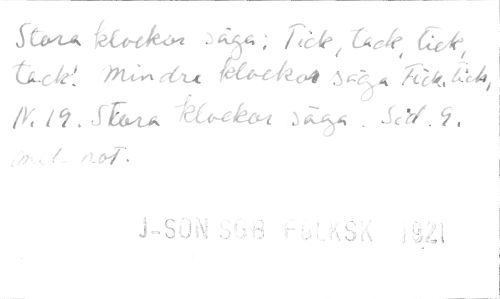 Stora klockor säga: Tick, tack, tick,
tack! Mindre klockor säga Tick, tick,
N. 19. Stora klockor säga. Sid. 9.
not.
J-SON SGB FOLKSK 1921